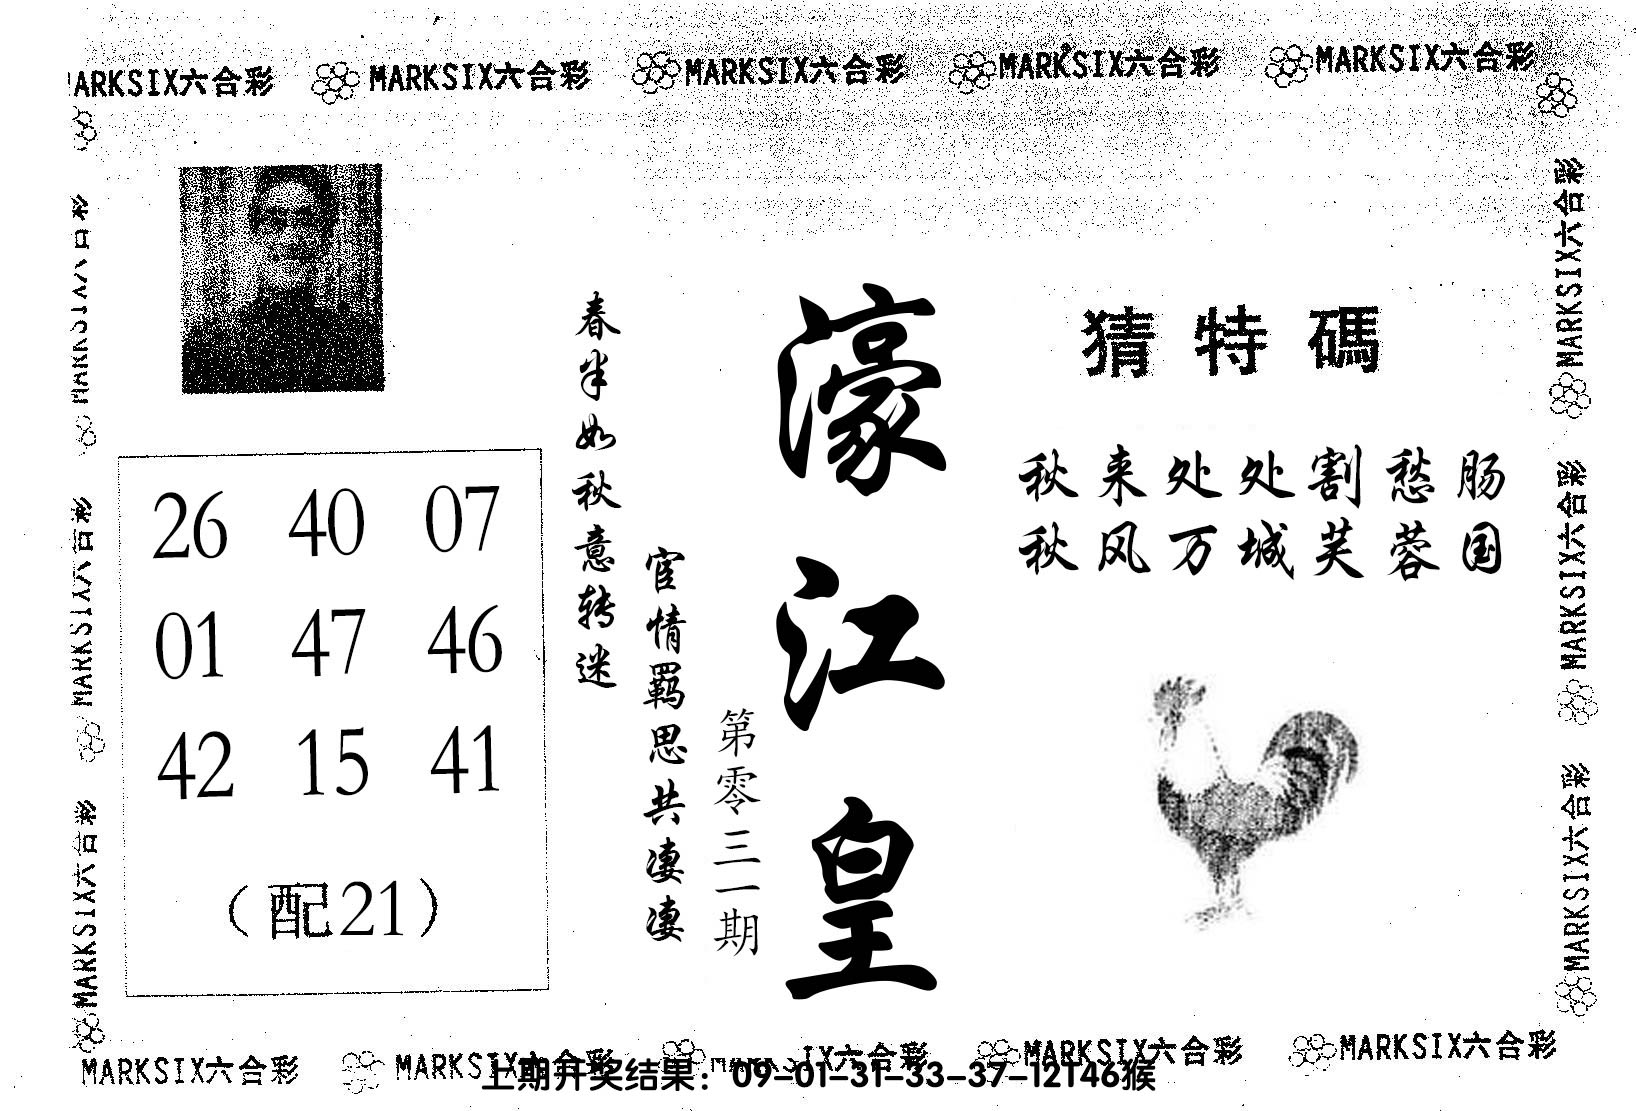 MARKSIX六合彩 MARKSIX六合彩 MARKSIX六合彩 MARKSIX六合彩 MARKSIX六合彩
猜特碼
秋来处处割愁肠
秋风万城芙蓉国
濠江皇
第零三一期
春半如秋意转迷
宦情羁思共凄凄
26 40 07
01 47 46
42 15 41
(配21)
MARKSIX六合彩
MARKSIX六合彩
MARKSIX六合彩
MARKSIX六合彩
MARKSIX六合彩
MARKSIX六合彩
MARKSIX六合彩 MARKSIX六合彩 IX六合彩 MARKSIX六合彩 MARKSIX六合彩
上期开奖结果：09-01-31-33-37-12T46猴